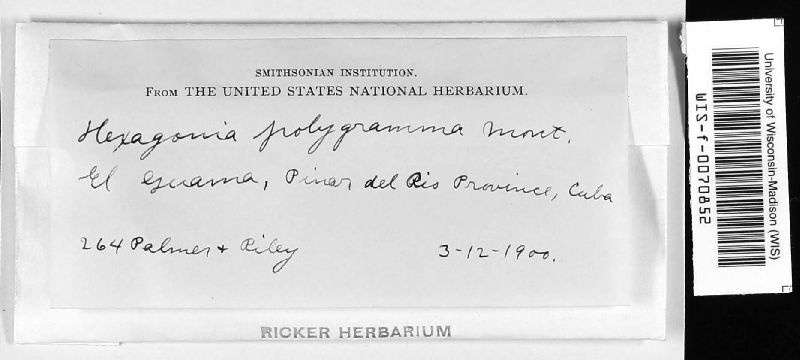 SMITHSONIAN INSTITUTION.
FROM THE UNITED STATES NATIONAL HERBARIUM.
Hexagonia polygramma Mont.
El Guama, Pinar del Rio Province, Cuba
264 Palmer + Riley 3-12-1900.
RICKER HERBARIUM
University of Wisconsin-Madison (WIS)
WIS-f-0070852